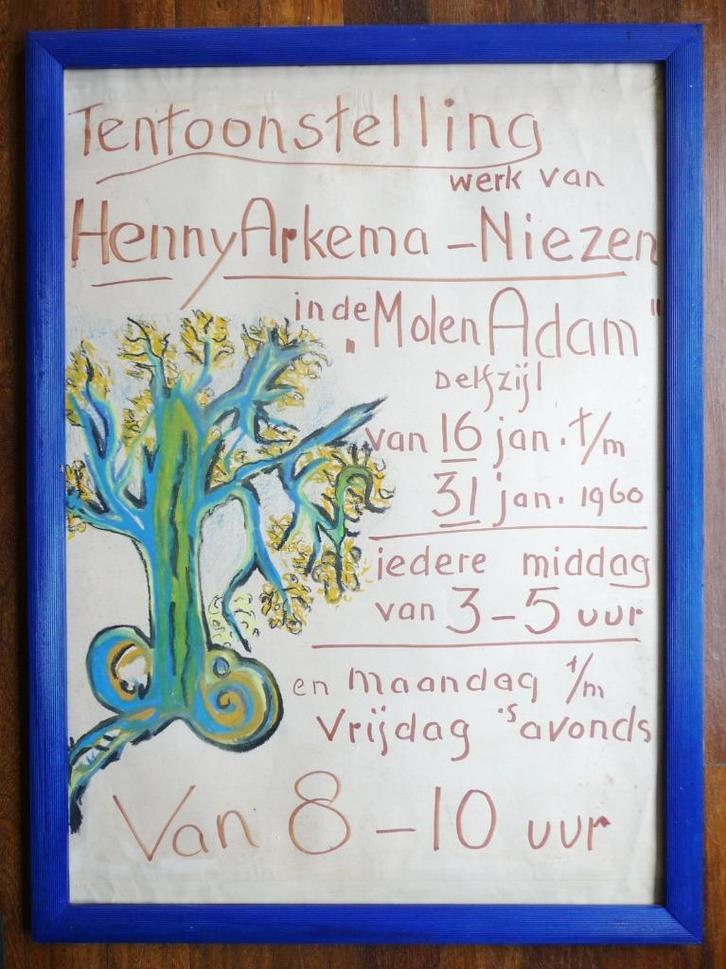 Tentoonstelling
werk van
Henny Arkema - Niezen
in de „Molen Adam"
Delfzijl
van 16 jan. t/m
31 jan. 1960
iedere middag
van 3-5 uur
en maandag t/m
Vrijdag 's avonds
Van 8-10 uur